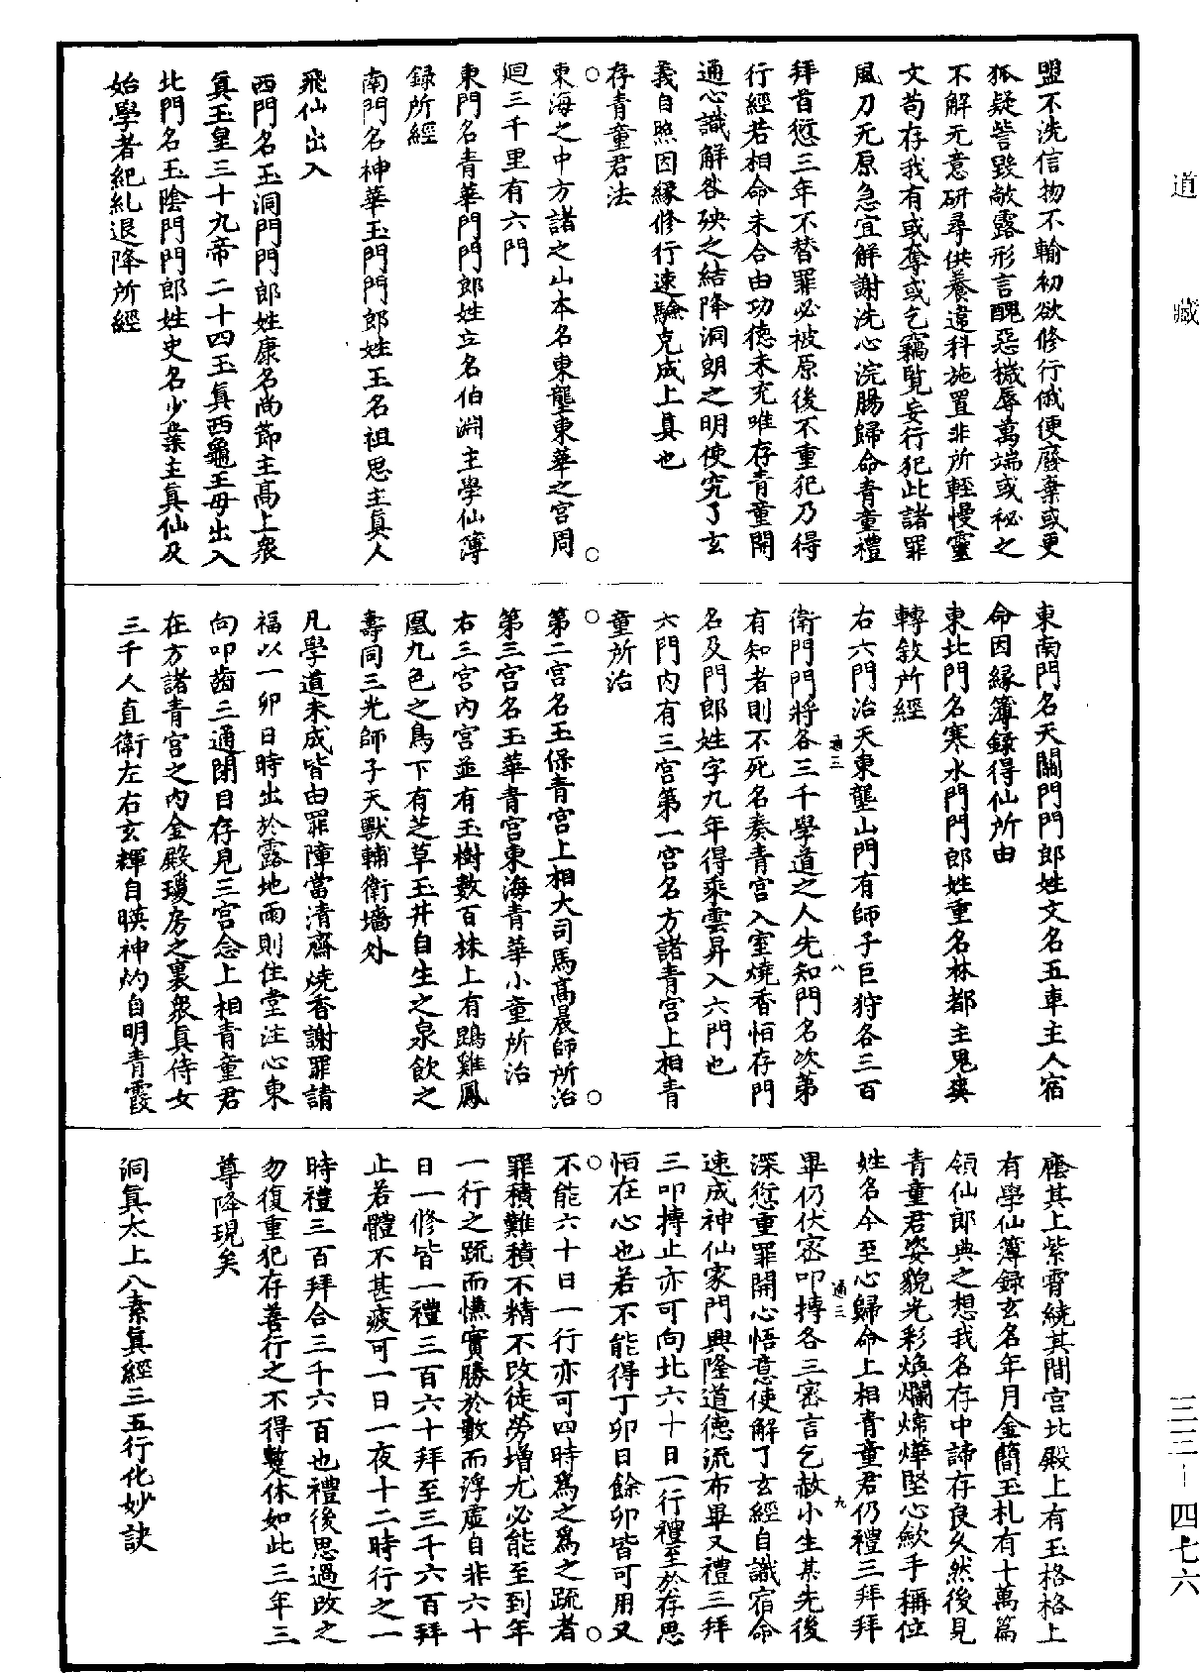 道藏
盟不洗信物不輸初欲修行俄便廢棄或更
狐疑訾毀敵露形言醜惡機辱萬端或秘之
不解无意研尋供養違科施置非所輕慢靈
文苟存我有或奪或乞竊覽妄行犯此諸罪
風刀无原急宜解謝洗心浣腸歸命青童禮
拜首愆三年不替罪必被原後不重犯乃得
行經若相命未合由功德未充唯存青童開
通心識解咎殃之結降洞朗之明使究了玄
義自照因緣修行速驗克成上真也
存青童君法
○ ○
東海之中方諸之山本名東壟東華之宮周
迴三千里有六門
東門名青華門門郎姓立名伯淵主學仙簿
録所經
南門名神華玉門門郎姓王名祖思主真人
飛仙出入
西門名玉洞門門郎姓康名尚節主高上衆
真玉皇三十九帝二十四玉真西龜王母出入
北門名玉陰門門郎姓史名少葉主真仙及
始學者紀糺退降所經
東南門名天關門門郎姓文名五車主人宿
命因緣簿録得仙所由
東北門名寒水門門郎姓重名林都主鬼爽
轉敘所經
右六門治天東壟山門有師子巨狩各三百
衛門門將各三千學道之人先知門名次第
有知者則不死名奏青宮入室燒香恒存門
名及門郎姓字九年得乘雲昇入六門也
六門内有三宮第一宮名方諸青宮上相青
童所治
○ ○
第二宮名玉保青宮上相大司馬高晨師所治
第三宮名玉華青宮東海青華小童所治
右三宮内宮並有玉樹數百株上有鵾雞鳳
凰九色之鳥下有芝草玉井自生之泉飲之
壽同三光師子天獸輔衛墻外
凡學道未成皆由罪障當清齋燒香謝罪請
福以一卯日時出於露地雨則住堂注心東
向叩齒三通閉目存見三宮念上相青童君
在方諸青宮之内金殿瓊房之裏衆真侍女
三千人直衛左右玄輝自暎神灼自明青霞
蔭其上紫霄繞其間宮北殿上有玉格格上
有學仙簿録玄名年月金簡玉札有十萬篇
領仙郎典之想我名存中諦存良久然後見
青童君姿貌光彩煥爛煒燁堅心歛手稱位
姓名今至心歸命上相青童君仍禮三拜拜
畢仍伏密叩摶各三密言乞赦小生某先後
深愆重罪開心悟意使解了玄經自識宿命
速成神仙家門興隆道德流布畢又禮三拜
三叩摶止亦可向北六十日一行禮至於存思
恒在心也若不能得丁卯日餘卯皆可用又
○ ○
不能六十日一行亦可四時爲之爲之疏者
罪積難積不精不改徒勞增尤必能至到年
一行之疏而懃實勝於數而浮虛自非六十
日一修皆一禮三百六十拜至三千六百拜
止若體不甚疲可一日一夜十二時行之一
時禮三百拜合三千六百也禮後思過改之
勿復重犯存善行之不得蹔休如此三年三
尊降現矣
洞真太上八素真經三五行化妙訣
通三
八
通三
九
三三－四七六